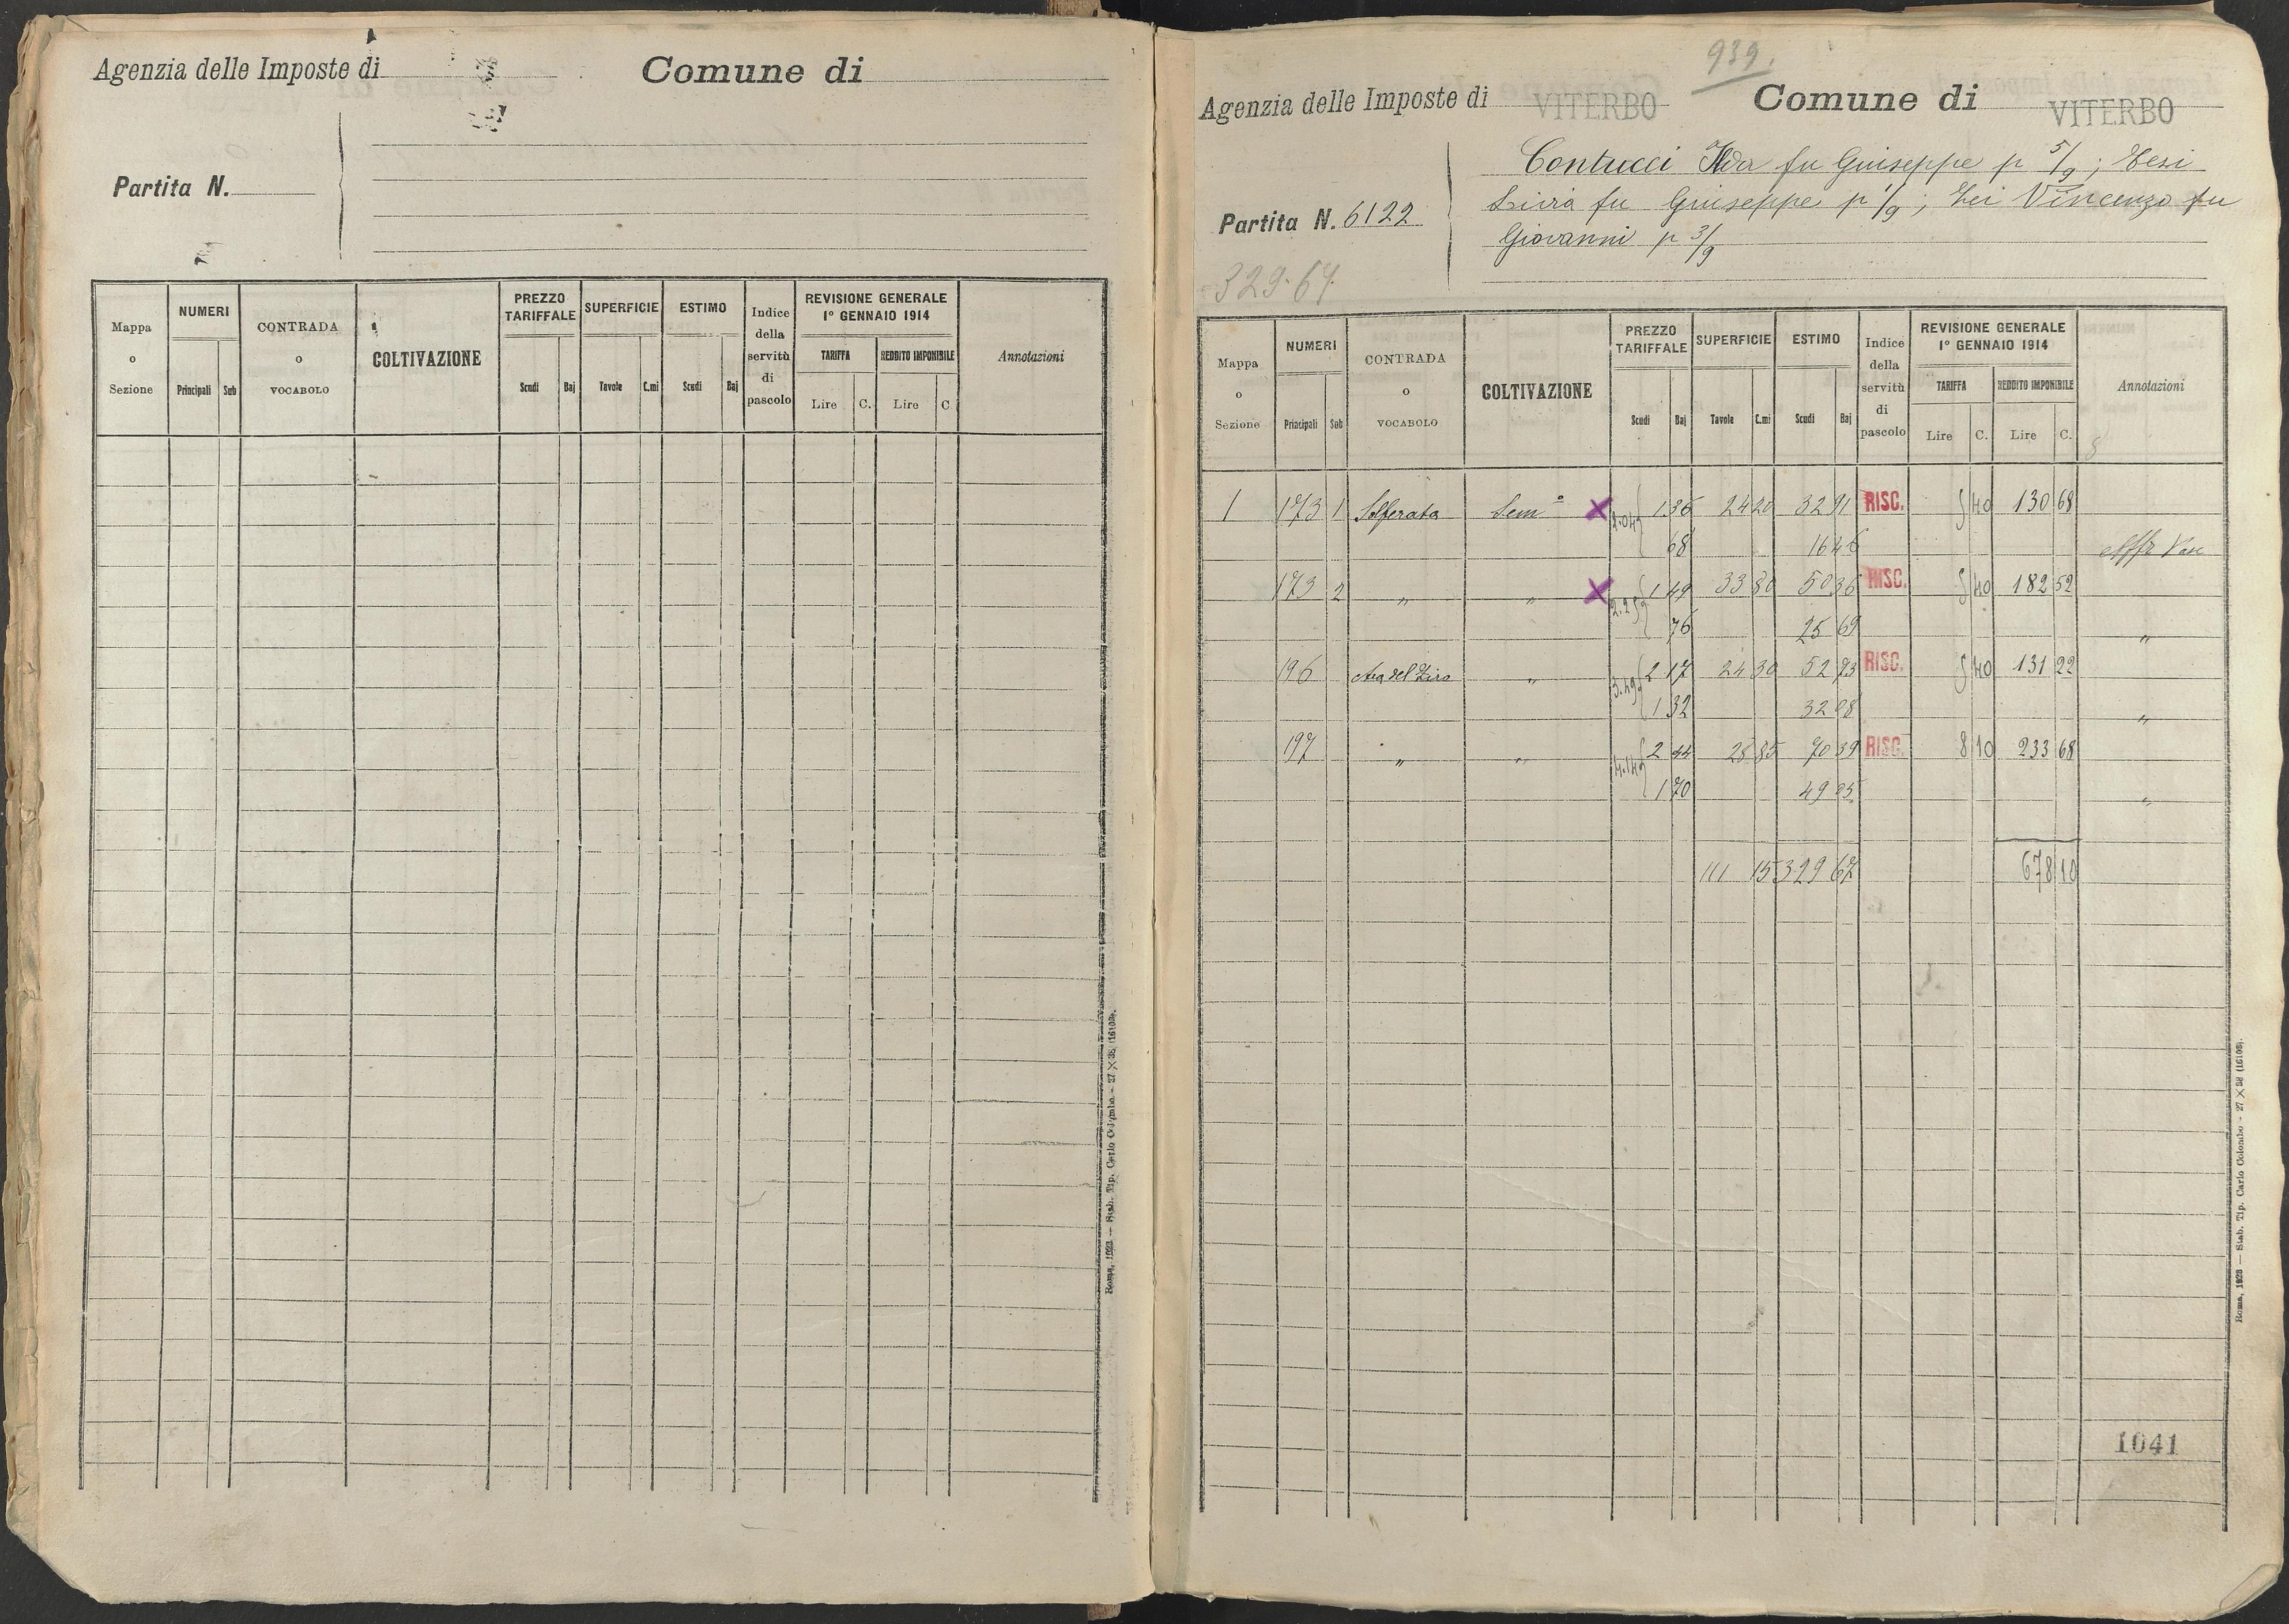 Agenzia delle Imposte di
Comune di
Partita N.
Mappa o Sezione
NUMERI
Principali Sub
CONTRADA o VOCABOLO
COLTIVAZIONE
PREZZO TARIFFALE
Scudi Baj
SUPERFICIE
Tavole C.mi
ESTIMO
Scudi Baj
Indice della servitù di pascolo
REVISIONE GENERALE
1° GENNAIO 1914
TARIFFA REDDITO IMPONIBILE
Lire C. Lire C
Annotazioni
Roma, 1923 — Stab. Tip. Carlo Colombo - 27 × 38 (16103).
939.
Agenzia delle Imposte di VITERBO Comune di VITERBO
Contucci Ilda fu Giuseppe p 5/9; Tesi
Partita N. 6122
Livia fu Giuseppe p 1/9; Vincenzo fu
Giovanni p 3/9
329.67
Mappa o Sezione
NUMERI
Principali Sub
CONTRADA o VOCABOLO
COLTIVAZIONE
PREZZO TARIFFALE
Scudi Baj
SUPERFICIE
Tavole C.mi
ESTIMO
Scudi Baj
Indice della servitù di pascolo
REVISIONE GENERALE
1° GENNAIO 1914
TARIFFA REDDITO IMPONIBILE
Lire C. Lire C.
Annotazioni
1 173 1 Solferata Sem° X 2.04 1 36 24 20 32 91 RISC. 5 40 130 68
68 16 46
173 2 " " X 2.25 1 49 33 80 50 36 RISC. 5 40 182 52
76 25 69 "
196 " 3.49 2 17 24 30 52 73 RISC. 5 40 131 22
1 32 32 08 "
197 " " 4.14 2 44 28 85 70 39 RISC. 8 10 233 68
1 70 49 05 "
111 15 329 67 678 10
1041
Roma, 1923 — Stab. Tip. Carlo Colombo - 27 × 38 (16103).